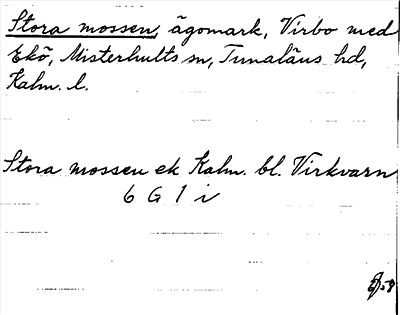 Stora mossen, ägomark, Virbo med
Ekö, Misterhults sn, Tunaläns hd,
Kalm. l.
Stora mossen ek Kalm. bl. Virkvarn
6 G 1 i